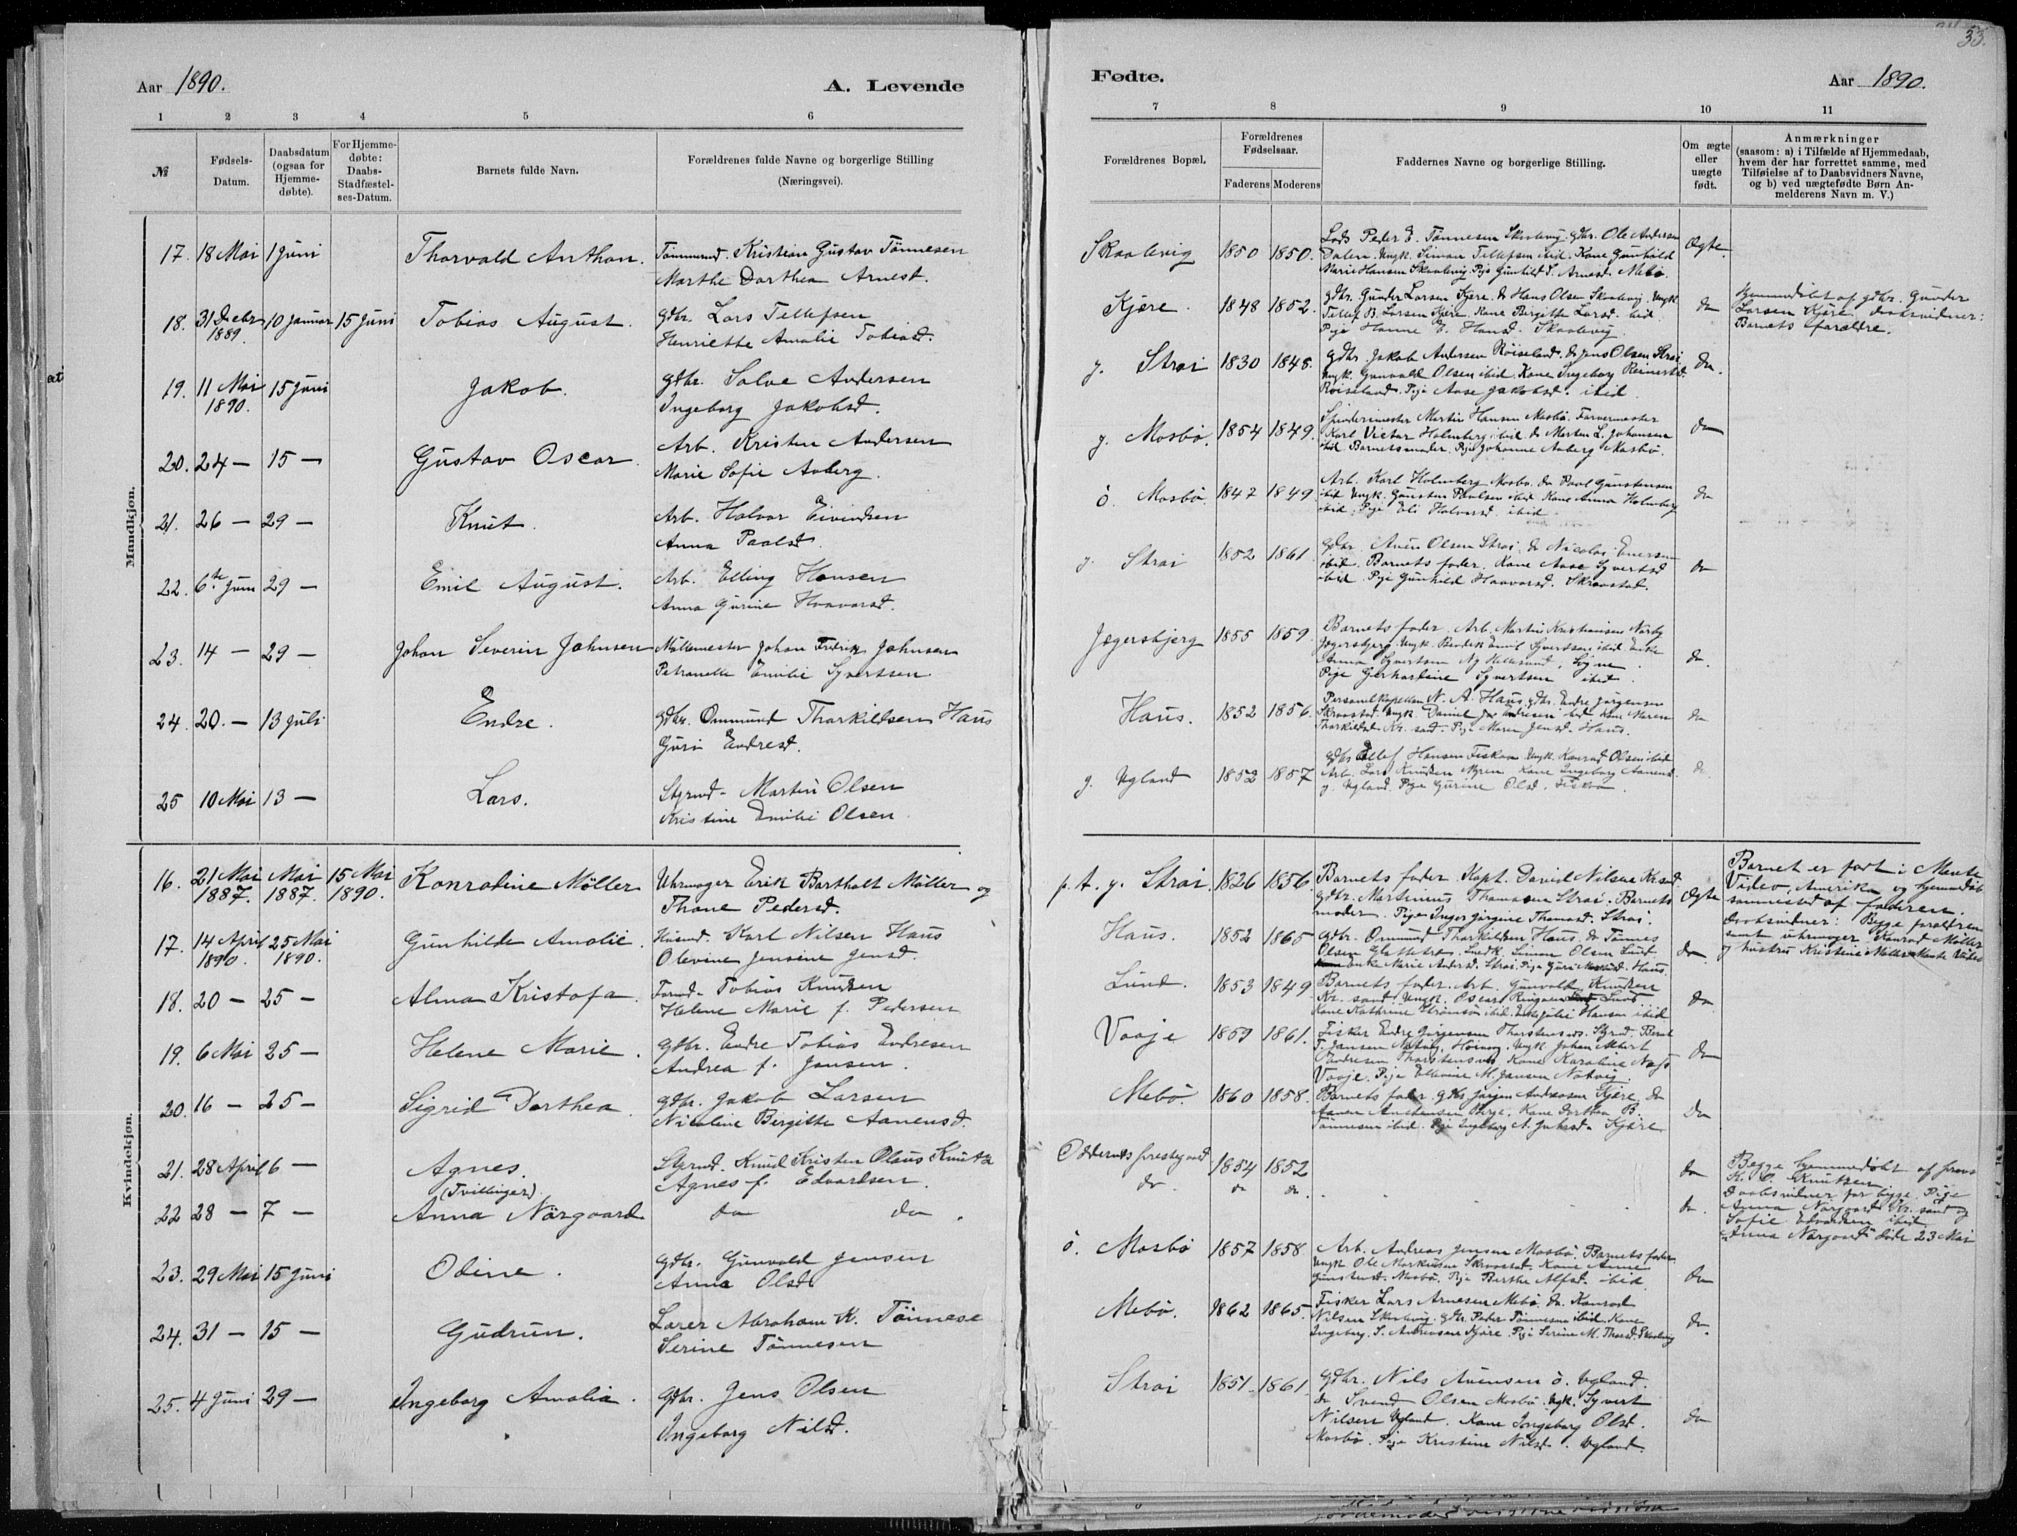 33.
Aar 1890.
A. Levende
Fødte.
Aar 1890.
1 2 3 4 5 6 7 8 9 10 11
№
Fødsels-
Datum.
Daabsdatum
(ogsaa for
Hjemme-
døbte).
For Hjemme-
døbte:
Daabs-
Stadfæstel-
ses-Datum.
Barnets fulde Navn.
Forældrenes fulde Navne og borgerlige Stilling
(Næringsvei).
Forældrenes Bopæl.
Forældrenes
Fødselsaar.
Faderens Moderens
Faddernes Navne og borgerlige Stilling.
Om ægte
eller
uægte
født.
Anmærkninger
(saasom: a) i Tilfælde af Hjemmedaab,
hvem der har forrettet samme, med
Tilføielse af to Daabsvidners Navne,
og b) ved uægtefødte Børn An-
melderens Navn m. V.)
Mandkjøn.
17. 18 Mai 1 Juni Thorvald Anthon. Kristian Gustav Tønnesen
Marthe Dorthea Arnesd.
Skaalevig 1850 1850. Lods Peder E. Tønnesen Skaalevig. gdbr. Ole Andersen
Dalen. Ungk. Simon Tellefsen ibid. Kone Gunhild
Marie Hansen Skaalevig. Pige Gunhild S. Arnesd. Mebø.
Ægte.
18. 31 Decbr 1889. 10 Januar 15 Juni Tobias August. gdbr. Lars Tellefsen
Henriette Amalie Tobiasd.
Kjøre. 1848 1852. gdbr. Gunder Larsen Kjøre. do Hans Olsen Skaalevig. Ungk.
Tellef B. Larsen Kjøre. Kone Birgitte Larsd. ibid.
Pige Hanne Hansd. Skaalevig.
do
Hjemmedøbt af gdbr. Gunder
Larsen Kjøre. Daabsvidner:
Barnets forældre.
19. 11 Mai 1890. 15 Juni Jakob. gdbr. Salve Andersen
Ingeborg Jakobsd.
y. Strai 1830 1848. gdbr. Jakob Andersen Røiseland. do Jens Olsen Strai
Ungk. Gunvald Olsen ibid. Kone Ingeborg Reinertsd.
Røiseland. Pige Aase Jakobsd. ibid.
do.
20. 24 — 15 — Gustav Oscar. Arb. Kristen Andersen
Marie Sofie Aaberg.
y. Mosbø. 1854 1849. Spinderimester Martin Hansen Mosbø. Farvermester
Karl Victor Holmberg ibid. do Morten L. Johansen
ibid. Barnets moder. Pige Johanne Aaberg Mosbø.
do
21. 26 — 29 — Knut. Arb. Halvor Eivindsen
Anna Paalsd.
ö. Mosbø 1847 1849. Arb. Karl Holmberg Mosbø. do Paul Gunstensen
ibid. Ungk. Gunsten Paulsen ibid. Kone Anna Holmberg
ibid. Pige Eli Halvorsd. ibid.
do
22. 6te Juni 29 — Emil August. Arb. Elling Hansen
Anna Gurine Haavorsd.
y. Strai 1852 1861. gdbr. Aanen Olsen Strai. do Nicolai Enersen
ibid. Barnets fader. Kone Aase Syvertsd
ibid. Pige Gunhild Haavorsd. Skraastad.
do
23. 14 — 29 — Johan Severin Johnsen Møllemester Johan Fredrik Johnsen
Petronelle Emilie Syvertsen
Jegersbjerg 1855 1859. Barnets fader. Arb. Martin Kristiansen Narby
Jegersbjerg. Ungk. Bendik Emil Syvertsen ibid. Enke
Anna Syvertsen Ny Hellesund, Søgne.
Pige Gerhardine Syvertsen ibid.
do.
24. 20. — 13 Juli Endre. gdbr. Ommund Thorkildsen Haus
Guri Endresd.
Haus. 1852 1856. Personelkapellan N. A. Haus. gdbr. Endre Jørgensen
Skraastad. Ungk. Daniel Andresen ibid. Kone Maren
Thorkildsd. Kr. sand. Pige Maren Jensd. Haus.
do
25 10 Mai 13 — Lars. Styrmd. Martin Olsen
Kristine Emilie Olsen
y. Ugland 1852 1857 gdbr Ellef Hansen Fiskaa. Ungk. Konrad Olsen ibid
Arb. Lars Knudsen Myren. Kone Ingeborg Aanensd.
y. Ugland. Pige Gurine Olsd. Fiskaa.
do.
Kvindekjøn.
16. 21 Mai 1887. Mai 1887. 15 Mai 1890. Konradine Møller Uhrmager Erik Bartholt Møller og
Thone Pedersd.
p. t. y. Strai. 1826 1856. Barnets fader. Kapt. David Nilsen Kr.sand
gdbr. Martinius Thomassen Strai. Barnets
moder. Pige Inger Jørgine Thomasd. Strai.
Ægte
Barnet er født i Monte
Video, Amerika og hjemmedøbt
sammested af faderen.
Daabsvidner: Begge forældrene
samt uhrmager Konrad Møller
og hustru Kristine Møller Monte Video
17. 14 April 1890. 25 Mai 1890. Gunhilde Amalie. Husmd. Karl Nilsen Haus
Olevine Jensine Jensd.
Haus. 1852 1865 gdbr. Ommund Thorkildsen Haus. do Tønnes
Olsen Glattetre. Ungk. Simon Olsen Lund
Enke Marie Andersd. Strai. Pige Guri Haus.
do.
18. 20 — 25 — Alma Kristofa. Tobias Knudsen
Helene Marie f. Pedersen
Lund. 1853 1849 Barnets fader. Arb. Gunvald Knudsen
Kr. sand. Ungk. Oscar Lund
Kone Kathrine ibid. Enke Julie Hansen ibid
do
19. 6 Mai 25 — Helene Marie. gdbr. Endre Tobias Endresen
Andrea f. Jensen.
Vaaje 1859 1861. Fisker Endre Jørgensen Thorstensnes. Styrmd. Bernt
T. Jansen Natvig, Høivaag. Ungk. Johan Albert
Andresen Thorstensnes. Kone Karoline Næs
Vaaje. Pige Ellevine M. Jansen Natvig.
do
20. 16 — 25 — Sigrid Dorthea. gdbr. Jakob Larsen
Nicoline Bergitte Aanensd.
Mebø. 1860 1858. Barnets fader. gdbr. Jørgen Andreasen Kjøre. do
Kone Dorthea B.
Tønnesen ibid. Pige Ingeborg A. Kjøre
do
21. 28 April 6 — Agnes.
(Tvillinger)
Styrmd. Knud Kristen Olaus Knutzen
Agnes f. Edvardsen.
Oddernes prestegaard 1854 1852 do
Begge hjemmedøbt af frøk.
K. O. Knutzen.
Daabsvidner for begge. Pige
Anna Nørgaard Kr. sand og
Sofie Edvardsen ibid.
Anna Nørgaard døde 23 Mai
22 28 — 7 — Anna Nørgaard do do.
do. do do. do.
23. 29 Mai 15 Juni Odine. gdbr. Gunvald Jensen
Anna Olsd.
ö. Mosbø 1857 1858 Arb. Andreas Jensen Mosbø. Barnets fader
Ungk. Ole Markussen Skraastad. Kone Anne
Gunstensd. Mosbø. Pige Berthe Alfsd. ibid.
do
24. 31 — 15 — Gudrun. Lærer Abraham K. Tønnesen
Serine Tønnesen
Mebø. 1862 1865. Fisker Lars Arnesen Mebø. do. Konrad
Nilsen Skaalevig. gdbr. Peder Tønnesen ibid. Kone
Ingeborg S. Andreasen Kjøre. Pige Serine M. Thorsd. Skaalevig
do.
25. 4 Juni 29 — Ingeborg Amalia. gdbr. Jens Olsen
Ingeborg Nilsd.
Strai 1851. 1861. gdbr. Nils Aanensen ö. Ugland.
do Svend Olsen Mosbø. Ungk. Syvert
Nilsen Ugland. Kone Ingeborg Olsd.
Mosbø. Pige Kristine Nilsd. Ugland.
do